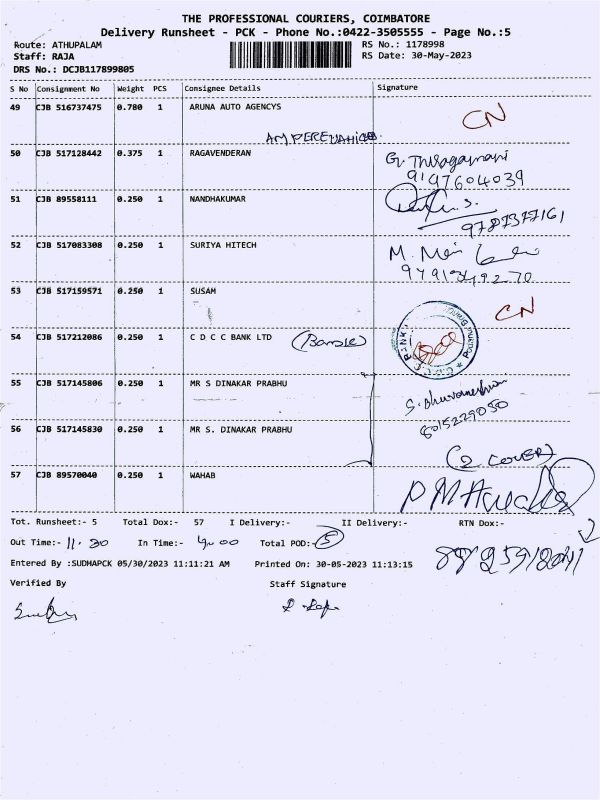 THE PROFESSIONAL COURIERS, COIMBATORE
Delivery Runsheet - PCK - Phone No.:0422-3505555 - Page No.:5
Route: ATHUPALAM RS No.: 1178998
Staff: RAJA RS Date: 30-May-2023
DRS No.: DCJB117899805
S No Consignment No Weight PCS Consignee Details Signature
49 CJB 516737475 0.780 1 ARUNA AUTO AGENCYS CN
50 CJB 517128442 0.375 1 RAGAVENDERAN
9197604039
51 CJB 89558111 0.250 1 NANDHAKUMAR
52 CJB 517083308 0.250 1 SURIYA HITECH
53 CJB 517159571 0.250 1 SUSAM CN
54 CJB 517212086 0.250 1 C D C C BANK LTD
55 CJB 517145806 0.250 1 MR S DINAKAR PRABHU
56 CJB 517145830 0.250 1 MR S. DINAKAR PRABHU
(2 COVER)
57 CJB 89570040 0.250 1 WAHAB
Tot. Runsheet:- 5 Total Dox:- 57 I Delivery:- II Delivery:- RTN Dox:-
Out Time:- 11.20 In Time:- 4.00 Total POD:- 5
Entered By :SUDHAPCK 05/30/2023 11:11:21 AM Printed On: 30-05-2023 11:13:15
Verified By Staff Signature